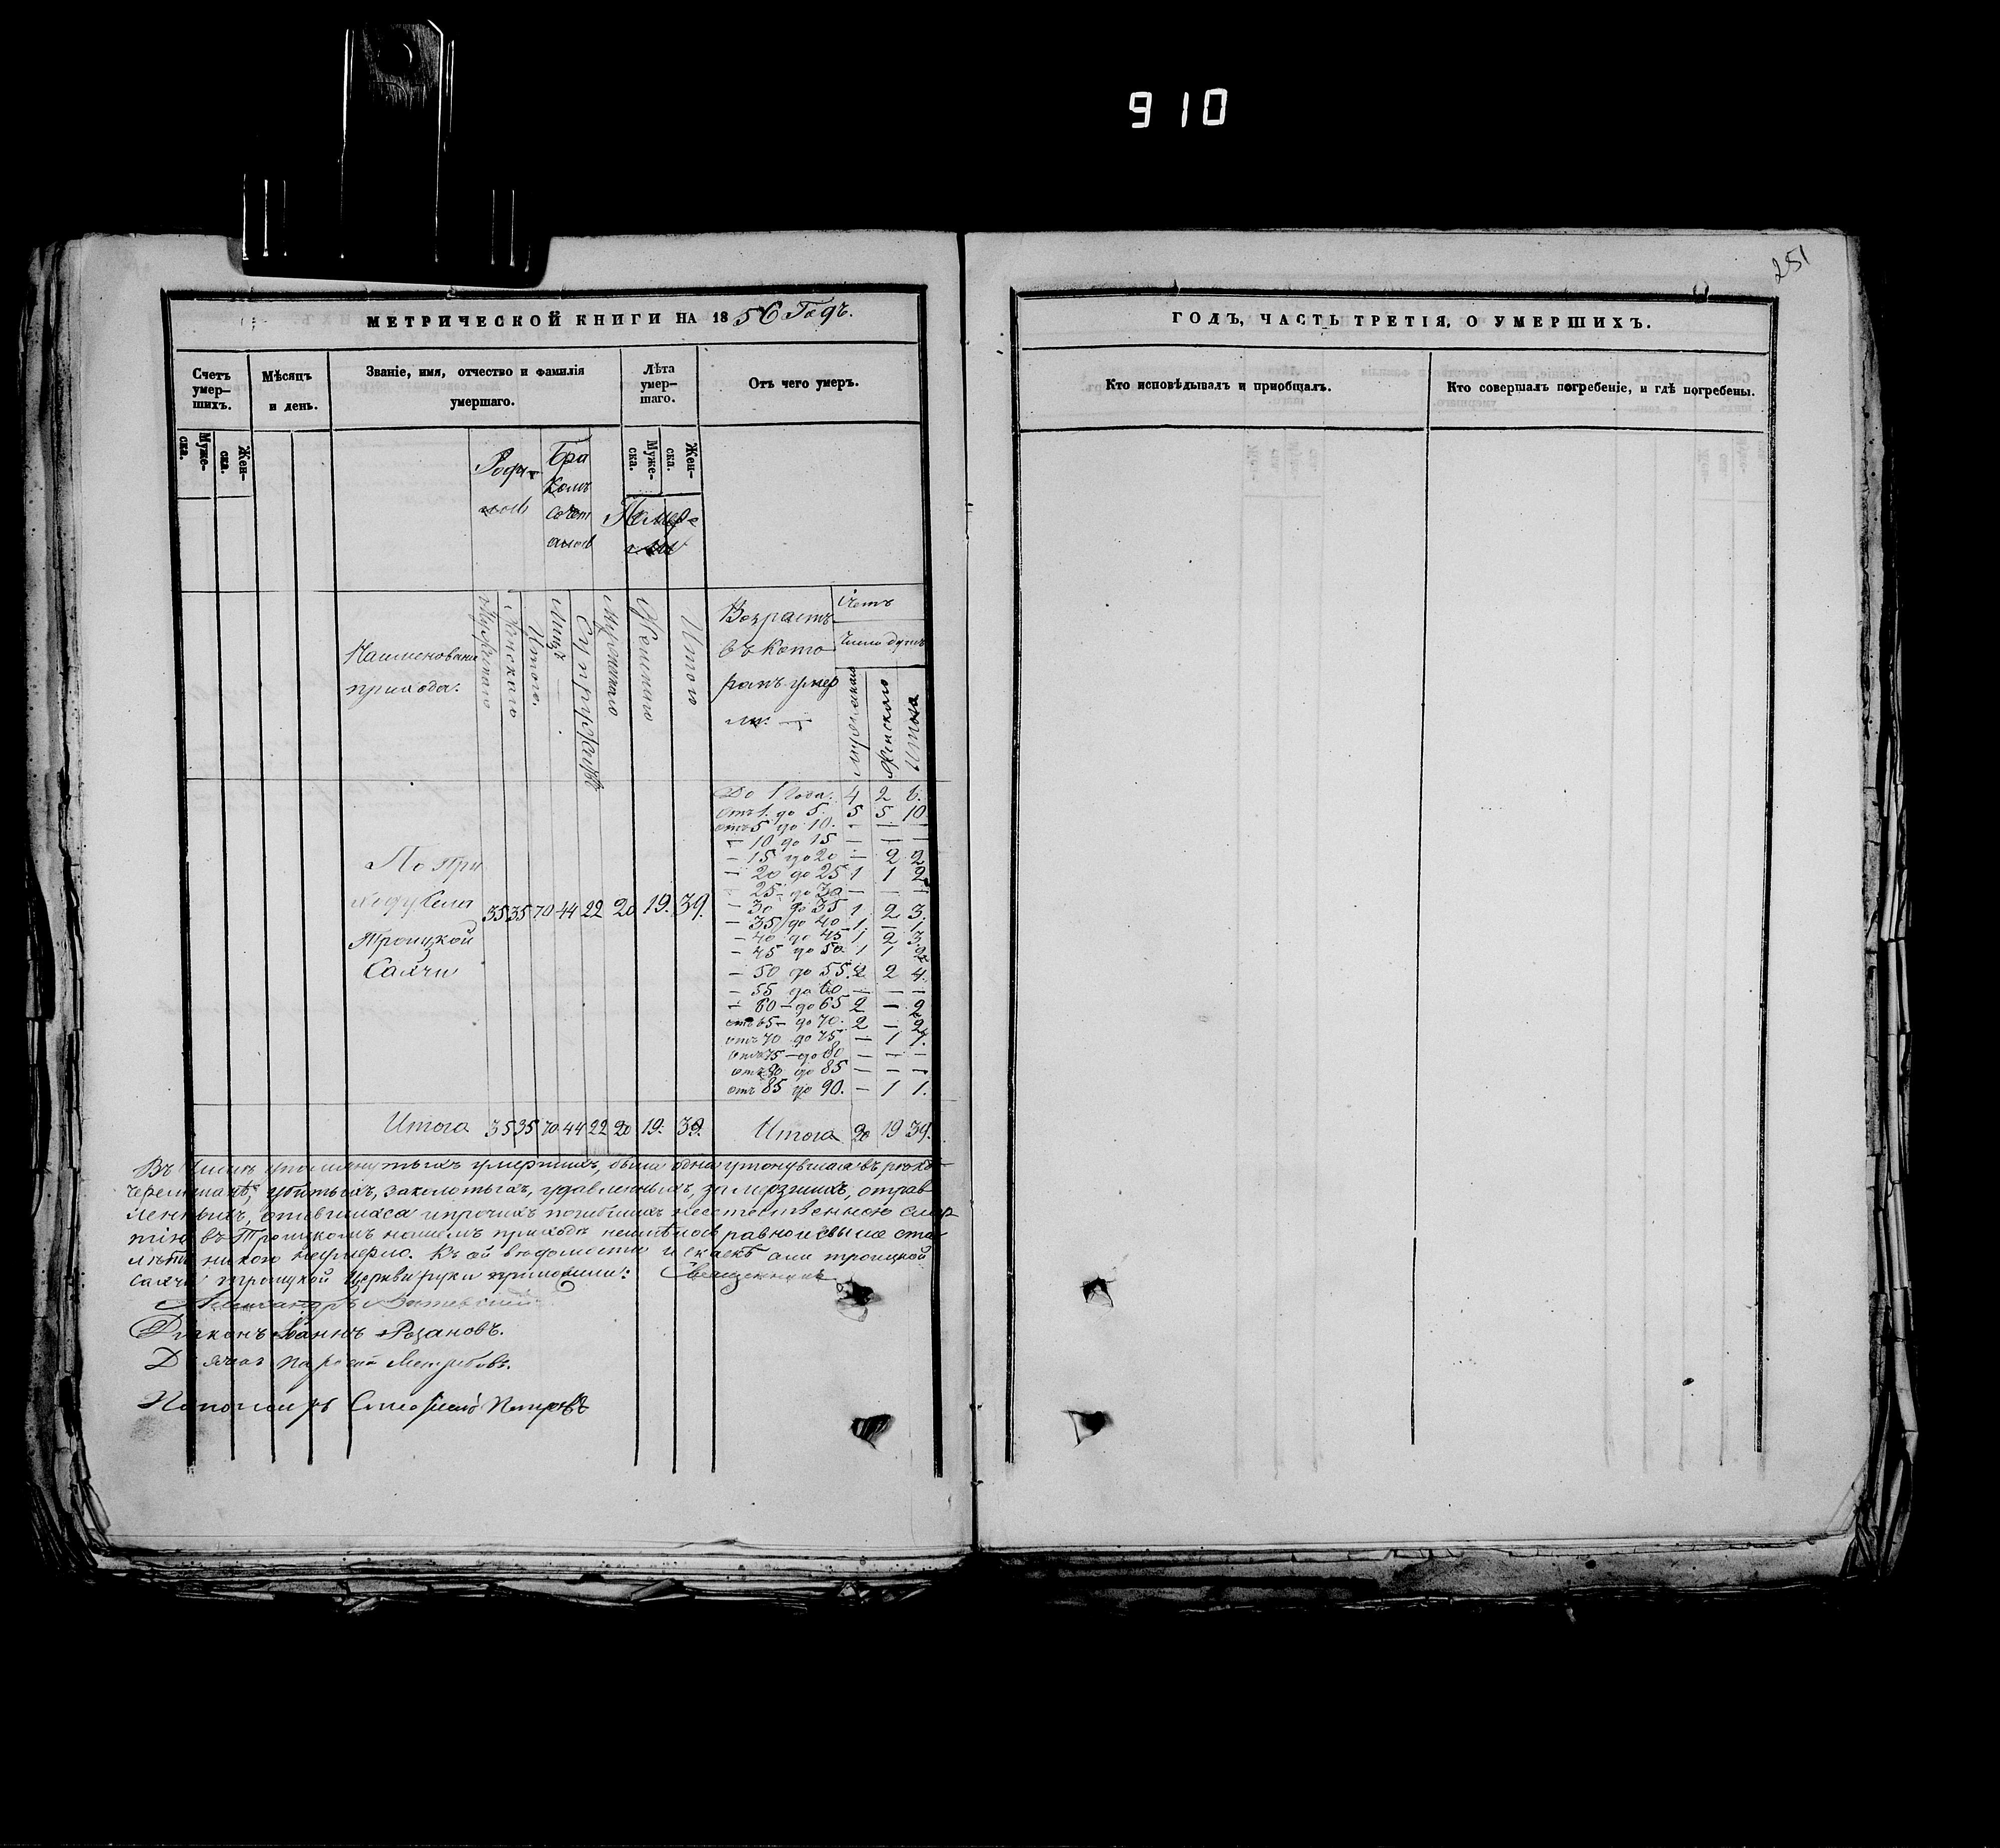 910
251
МЕТРИЧЕСКОЙ КНИГИ НА 1856 Годъ.
Счетъ умер-
шихъ.
Мѣсяцъ
и день.
Званіе, имя, отчество и фамилія
умершаго.
Лѣта
умер-
шаго.
Отъ чего умеръ.
Муже-
ска.
Жен-
ска.
Муже-
ска.
Жен-
ска.
Бра
комъ
сочет
Помер-
ли
Наименован
прихода.
Женскаго
Итого.
Лицъ
Супружествъ
Мужескаго
Женскаго
Итого
Возрастъ
въ кото
ромъ умер
ли.
Счетъ
Число душъ
Мужескаго
Женскаго
Итого
До 1 Года. 4 2 6.
отъ 1. до 5. 5 5 10.
отъ 5 до 10. — — —
— 10 до 15 — — —
— 15 до 20 — 2 2
— 20 до 25 1 1 2
— 25 до 30 — — —
— 30 до 35 1. 2 3.
— 35 до 40 1. — 1.
— 40 до 45 1. 2 3.
— 45 до 50. 1 1 2
— 50 до 55. 2 2 4.
— 55 до 60 — — —
— 60 — до 65 2 — 2
отъ 65 — до 70. 2 — 2
отъ 70 до 75. — 1 1.
отъ 75 — до 80 — — —
отъ 80 до 85 — — —
отъ 85 до 90. — 1 1.
По при
ходу Села
Троицкой
Салчи
35 35 70 44 22 20 19. 39.
Итого 35 35 70 44 22 20 19. 39. Итого 20 19 39.
Въ числѣ упомянутыхъ умершихъ, была одна утонувшая въ рѣкѣ
убитыхъ, заколотыхъ, удавленныхъ, замерзшихъ, отрав
ленныхъ, и прочихъ погибшихъ неестественною смер
тію въ Троицкомъ нашемъ приходѣ равно и свыше ста
лѣтъ никого не умерло. Къ ей вѣдомости Троицкой
Салчи Троицкой Церкви руки приложили: Священникъ
Александръ
Діаконъ Іоаннъ Розановъ.
Пономарь Петровъ
ГОДЪ, ЧАСТЬ ТРЕТІЯ, О УМЕРШИХЪ.
Кто исповѣдывалъ и пріобщалъ.
Кто совершалъ погребеніе, и гдѣ погребены.